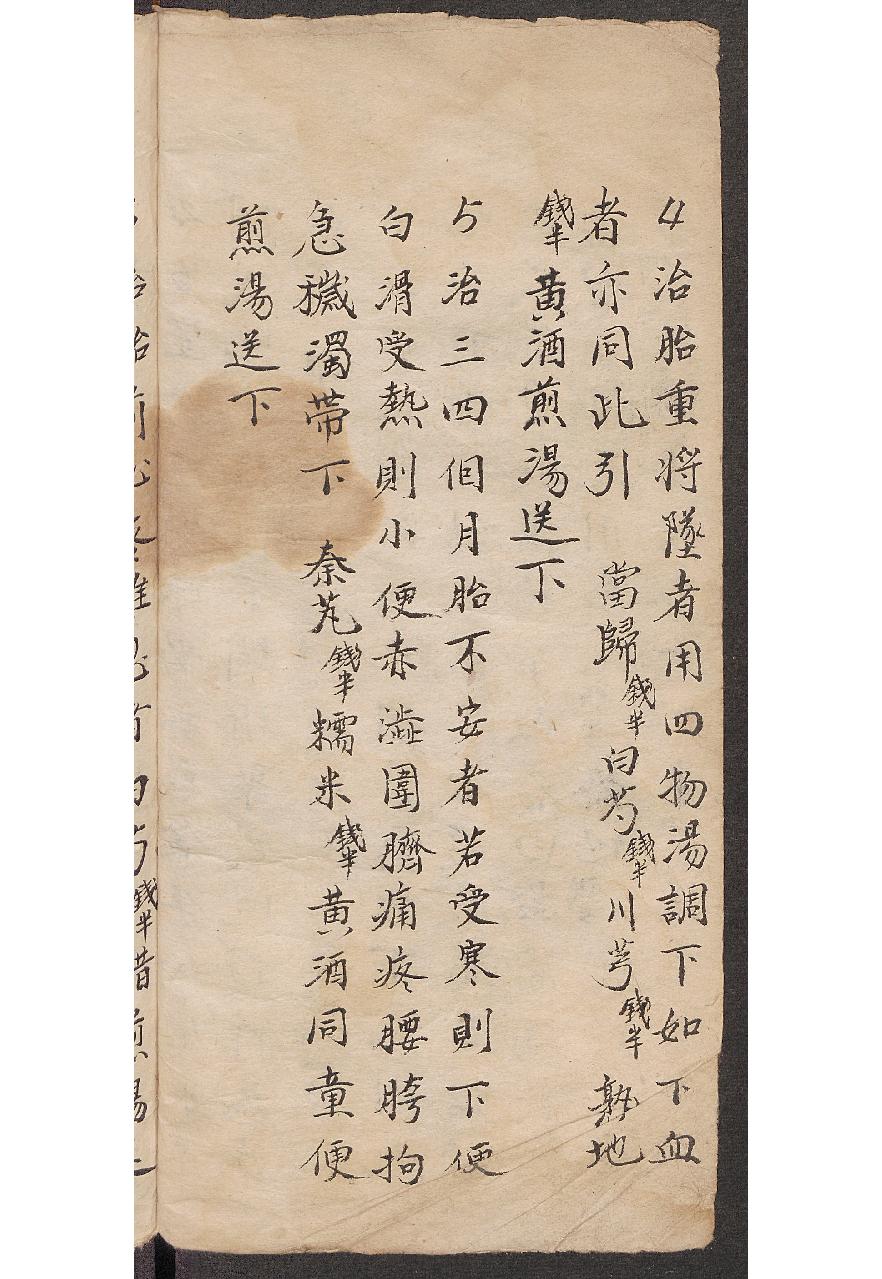 4治胎重将墜者用四物湯調下如下血
者亦同此引　當歸錢半白芍錢半川芎錢半熟地
錢半黄酒煎湯送下
5治三四個月胎不安者若受寒則下便
白滑受熱則小便赤澁圍臍痛疼腰胯拘
急穢濁帶下　秦艽錢半糯米錢半黄酒同童便
煎湯送下